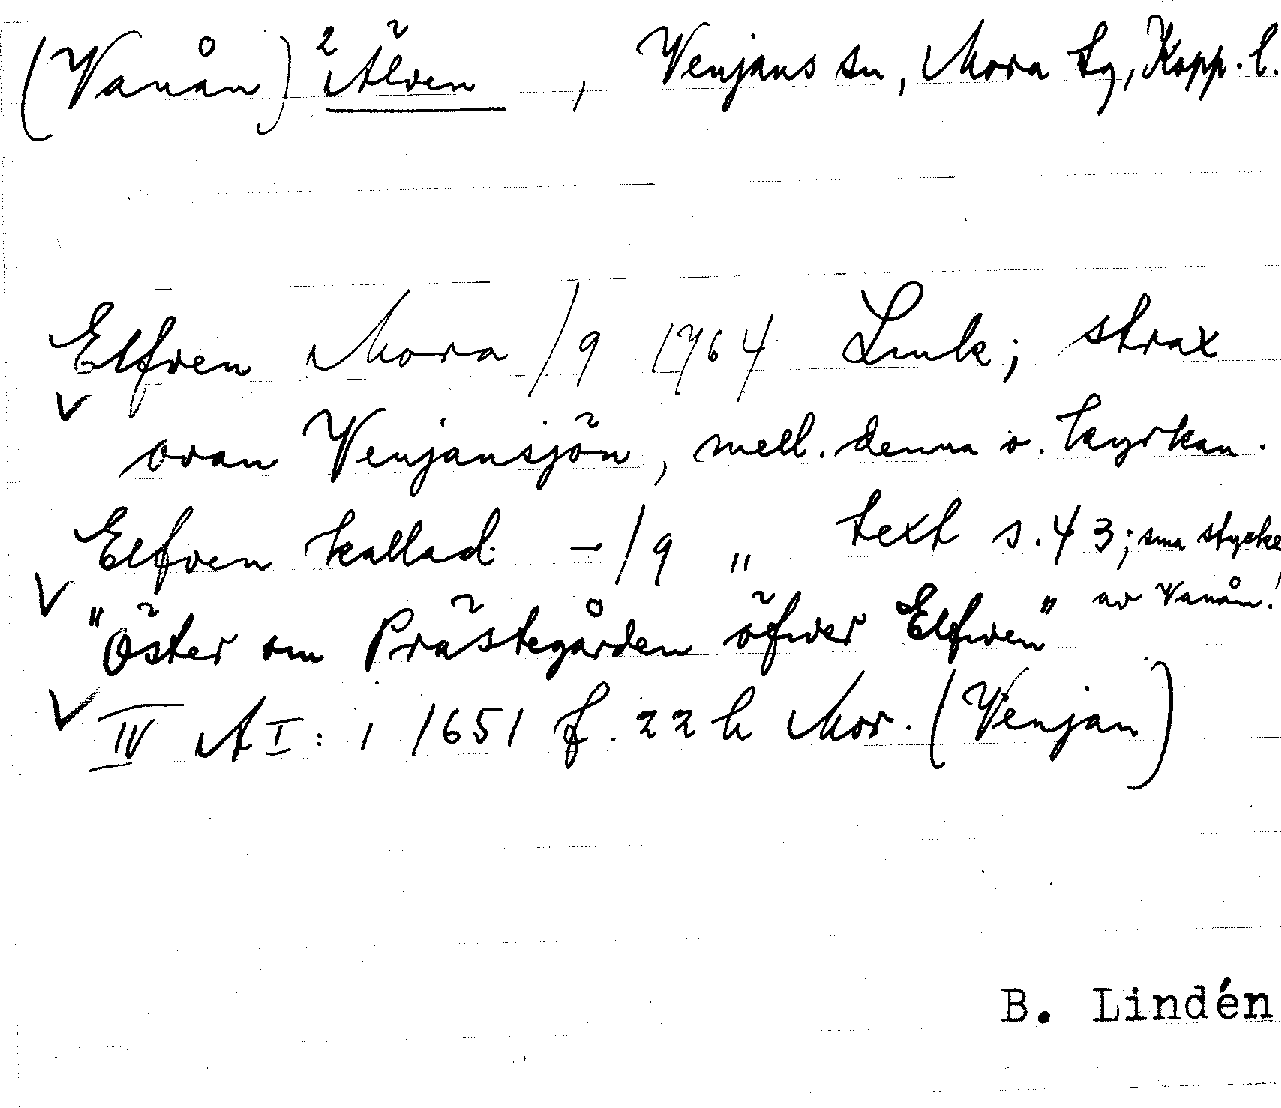 (Vanån) 2 Älven, Venjans sn, Mora tg, Kopp. l.
Elfven Mora /9 1764 Lmk; strax
ovan Venjansjön, mell. denna o. kyrkan.
Elfven kallad -/9 „ text s. 43; sma stycke
av Vanån!
"Öster om Prästegården öfwer Elfwen"
IV A I: 1 1651 f. 22 h Mor. (Venjan)
B. Lindén